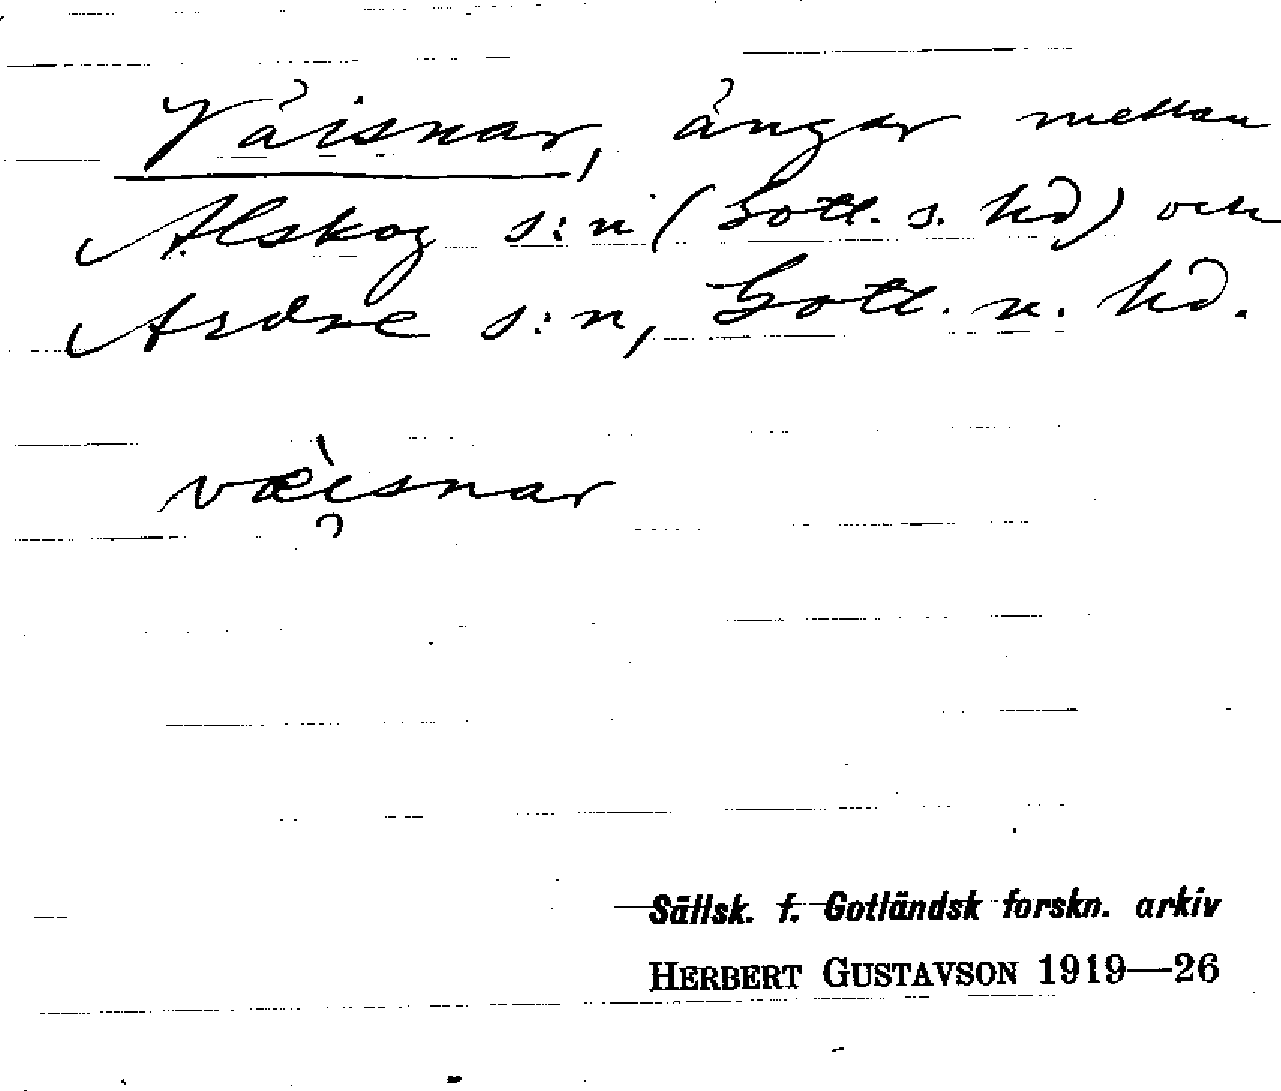 Väisnar, ängar mellan
Alskog s:n (Gotl. s. hd) och
Ardre s:n, Gotl. n. hd.
væ̀i̯snar
Sällsk. f. Gotländsk forskn. arkiv
HERBERT GUSTAVSON 1919—26